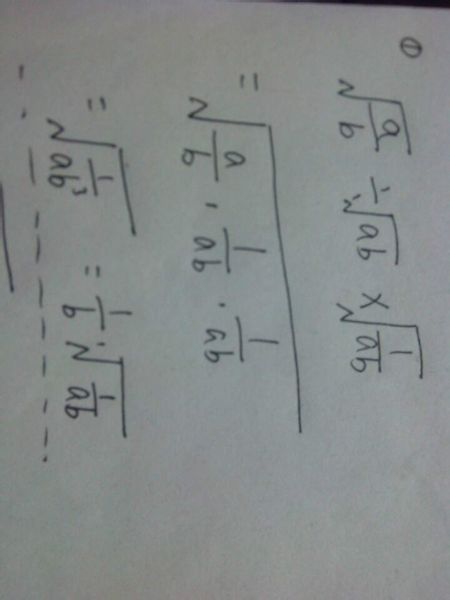 ①
√(a/b) ÷ √(ab) × √(1/(ab))
= √(a/b · 1/(ab) · 1/(ab))
= √(1/(ab³)) = 1/b · √(1/(ab))